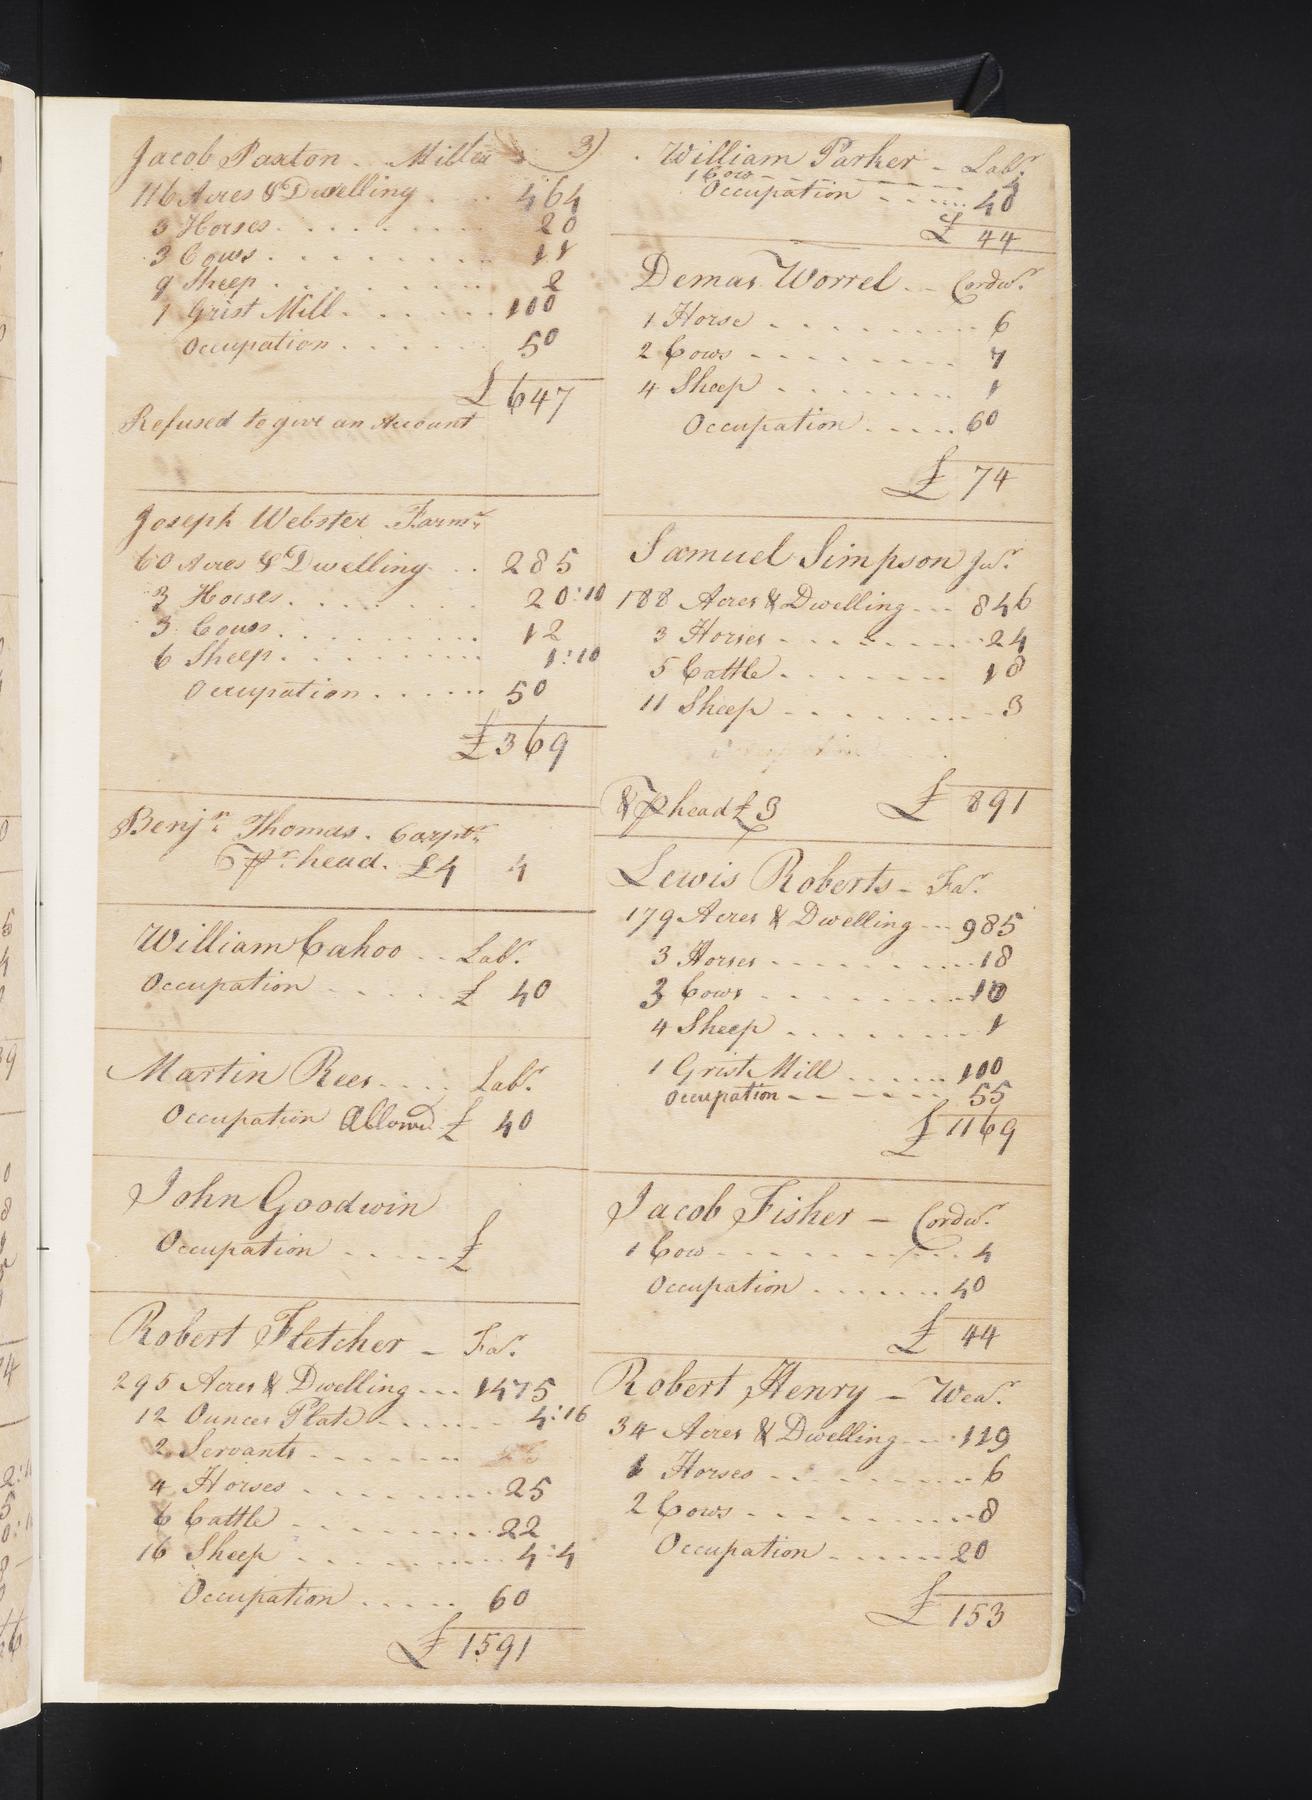 Jacob Paxton .. Miller 3)
116 Acres & Dwelling .... 464
3 Horses ........ 20
3 Cows ........ 11
9 Sheep ........ 2
1 Grist Mill ...... 100
Occupation ...... 50
£ 647
Refused to give an Account
Joseph Webster . Farmr.
60 Acres & Dwelling .. 285
3 Horses ........ 20:10
3 Cows ......... 12
6 Sheep ......... 1:10
Occupation ...... 50
£ 369
Benjn. Thomas . Carptr.
pr. head. £4 4
William Cahoo .. Labr.
Occupation ..... £ 40
Martin Rees .... Labr.
Occupation Allowd £ 40
John Goodwin
Occupation ..... £
Robert Fletcher - Far.
295 Acres & Dwelling ... 1475
12 Ounces Plate ...... 4:16
2 Servants .......
4 Horses ......... 25
6 Cattle ......... 22
16 Sheep .......... 4:4
Occupation ..... 60
£ 1591
William Parker - Labr.
1 Cow - - - - - - 4
Occupation ...... 40
£ 44
Demas Worrel .. Cordwr.
1 Horse ......... 6
2 Cows ......... 7
4 Sheep ........ 1
Occupation ..... 60
£ 74
Samuel Simpson Junr.
188 Acres & Dwelling ... 846
3 Horses ........ 24
5 Cattle ....... 18
11 Sheep ........ 3
& pr head £3 £ 891
Lewis Roberts - Far.
179 Acres & Dwelling ... 985
3 Horses ........ 18
3 Cows ........ 10
4 Sheep ....... 1
1 Grist Mill ...... 100
Occupation - - - - - 55
£ 1169
Jacob Fisher - Cordwr.
1 Cow .......... 4
Occupation ....... 40
£ 44
Robert Henry - Wear.
34 Acres & Dwelling ... 119
1 Horses ........ 6
2 Cows ......... 8
Occupation ...... 20
£ 153